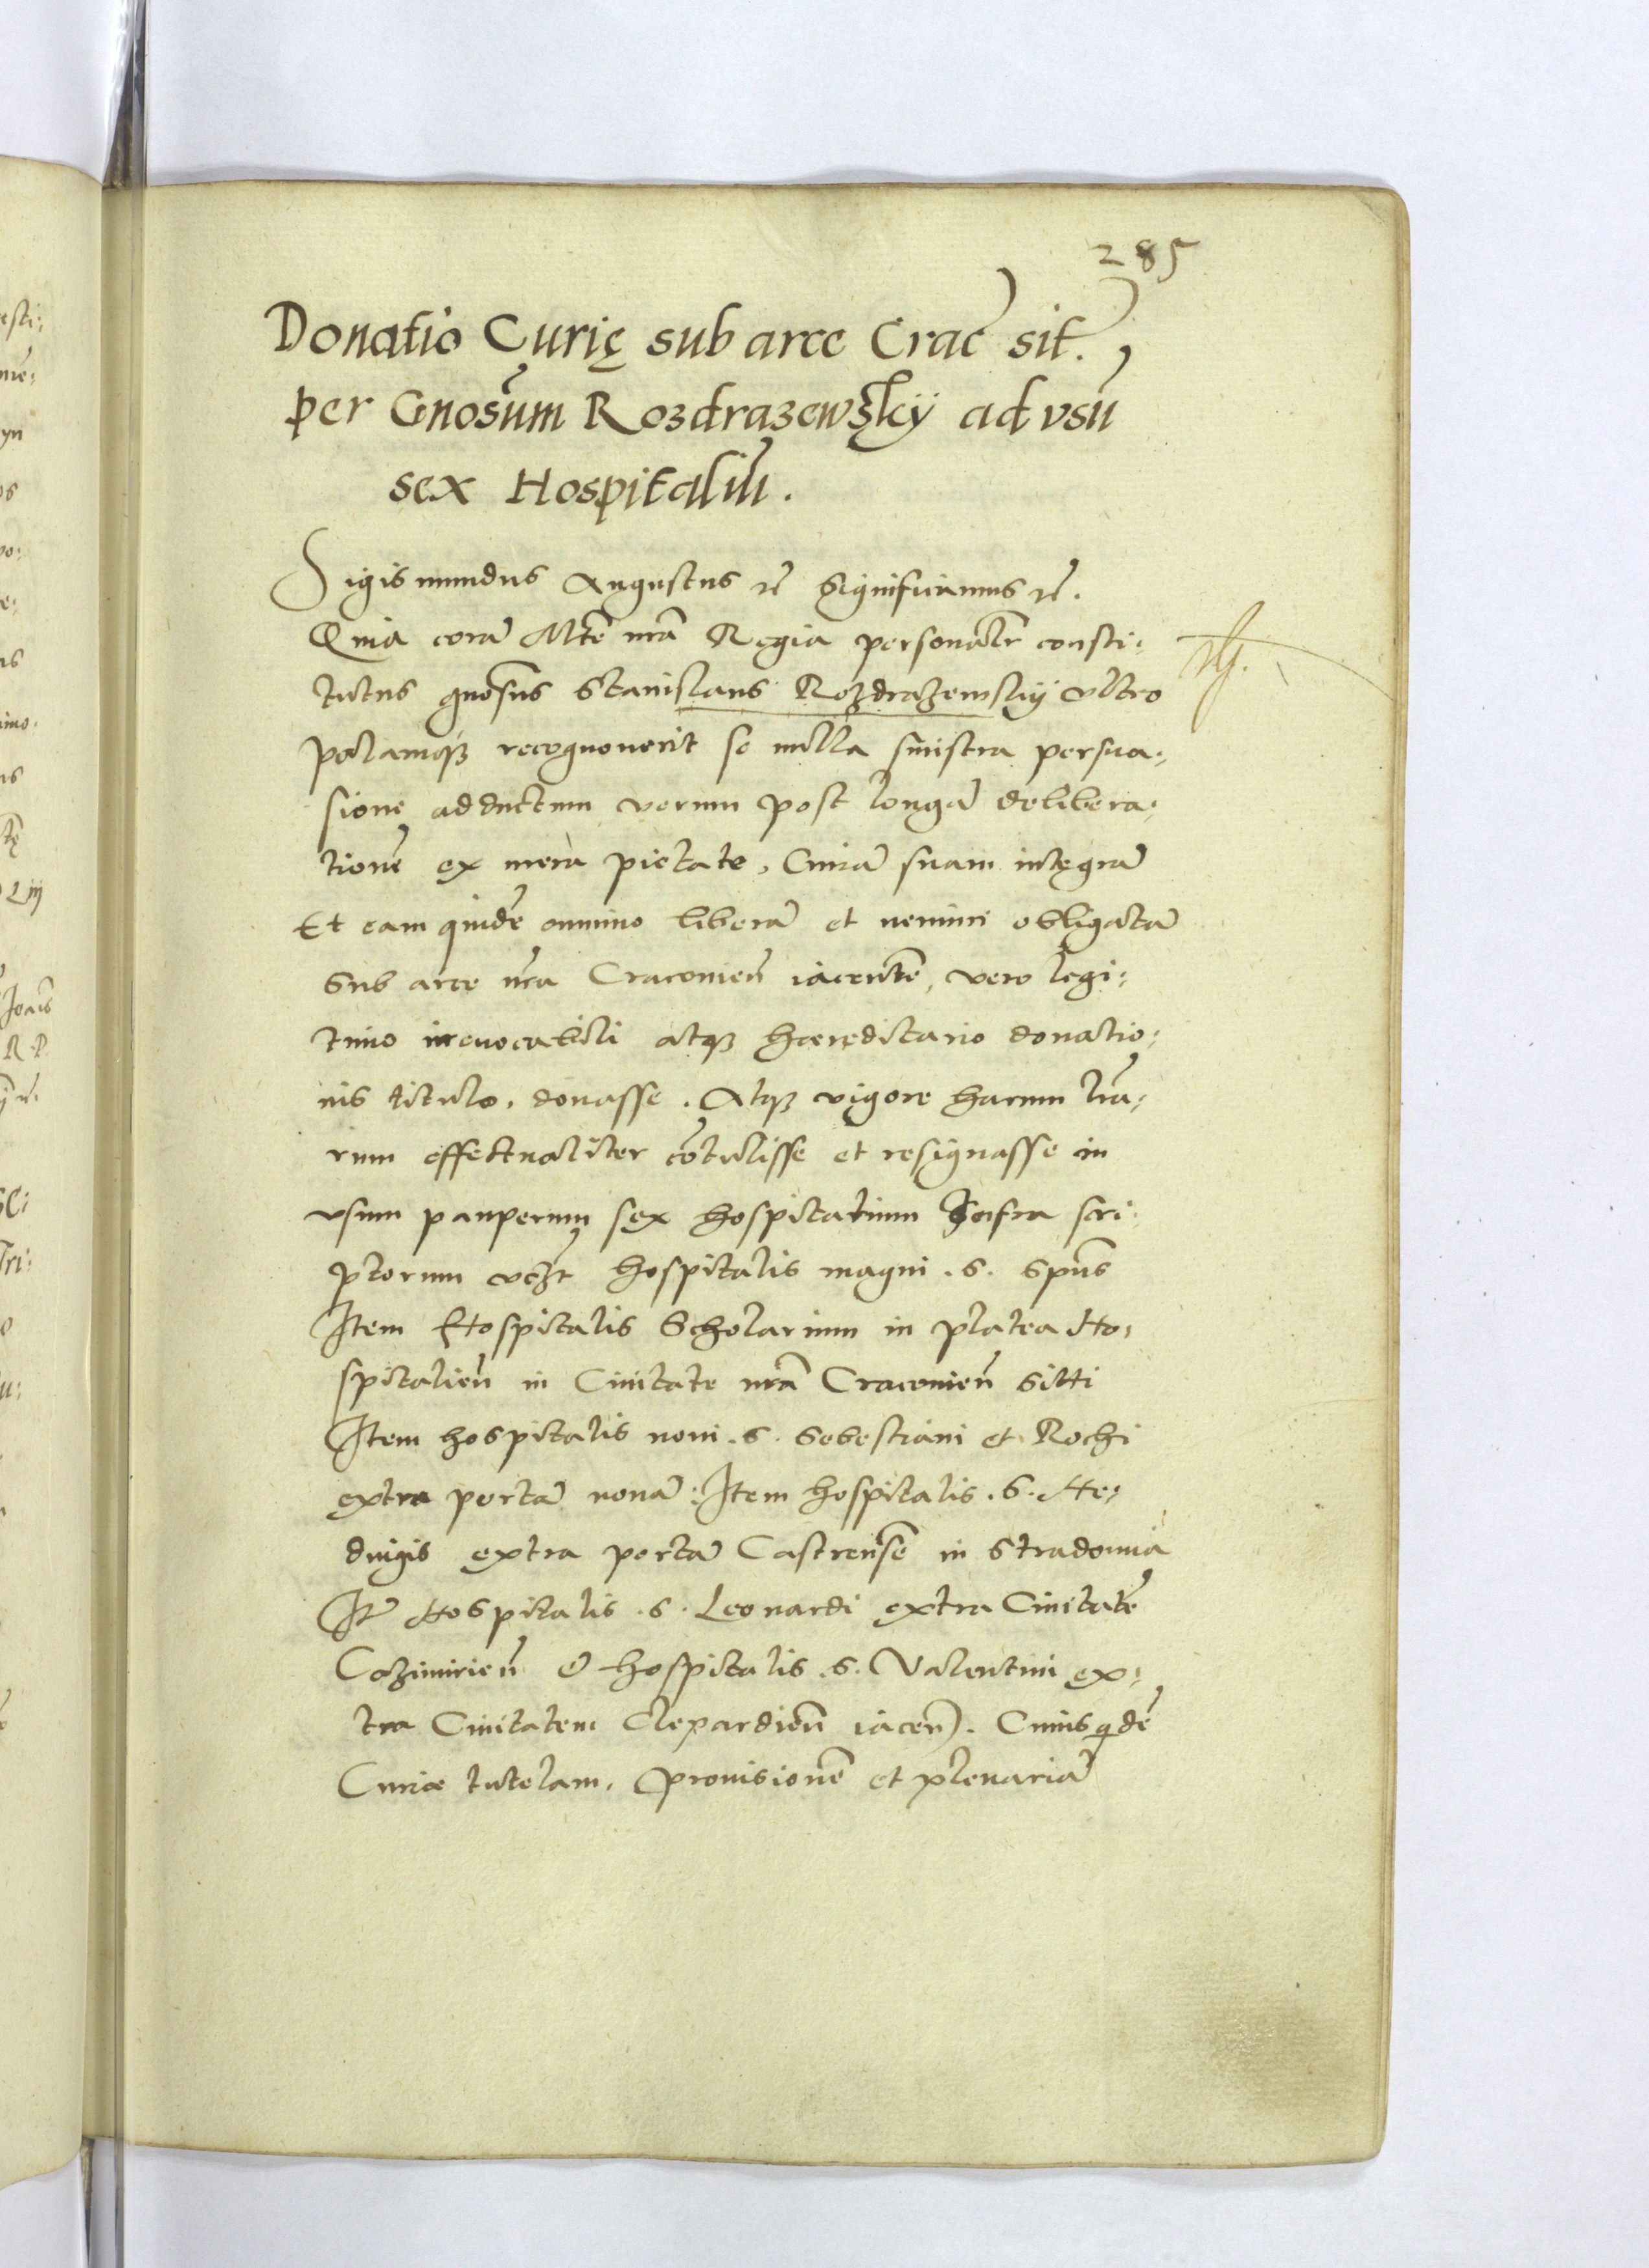 285
Donatio Curię sub arce Crac̄ sit.
per Gnosum Rozdrazewskÿ ad vsū
sex Hospitaliū.
Sigismundus Augustus rc̄ Significamus rc̄.
Quia corā Mtē nrā Regia personalr̄ consti:
tutus gnosus Stanislaus Rozdrazewskÿ vltro
palamqꝫ recognouerit se nulla sinistra persua:
sione adductum verum post longā delibera:
tionē ex mera pietate, Curiā suam integrā
Et eam quidē omnino liberā et nemini obligatā
Sub arce nrā Craconieñ iacentē, vero legi:
timo irreuocabili atqꝫ hæreditario donatio:
nis titulo, donasse. Atqꝫ vigore harum lrā:
rum effectualiter cōtulisse et resignasse in
vsum pauperum sex hospitalium Infra scri:
ptorum vcꝫt hospitalis magni .S. Spūs
Item Hospitalis Scholarium in platea Ho:
spitalieñ in Ciuitate nrā Cracouieñ Sitti
Item hospitalis noui .S. Sebestiani et Rochi
extra portā nouā: Item hospitalis .S. He:
duigis extra portā Castrensē in Stradomia
Itē Hospitalis .S. Leonardi extra Ciuitatē
Cazimirieñ & hospitalis .S. Valentini ex:
tra Ciuitatem Clepardieñ iaceñ. Cuius qdē
Curiæ tutelam, prouisionē et plenariā